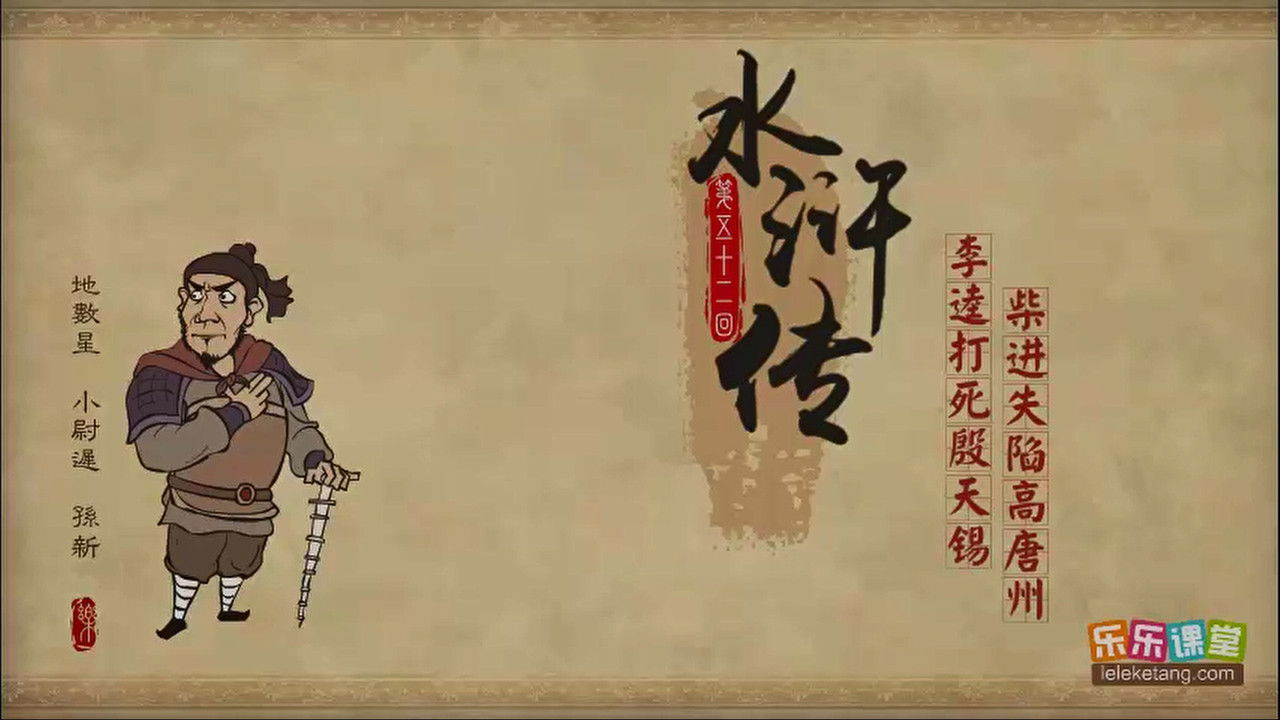 水浒传
第五十二回
李逵打死殷天锡
柴进失陷高唐州
地數星 小尉遲 孫新
樂
乐乐课堂
leleketang.com